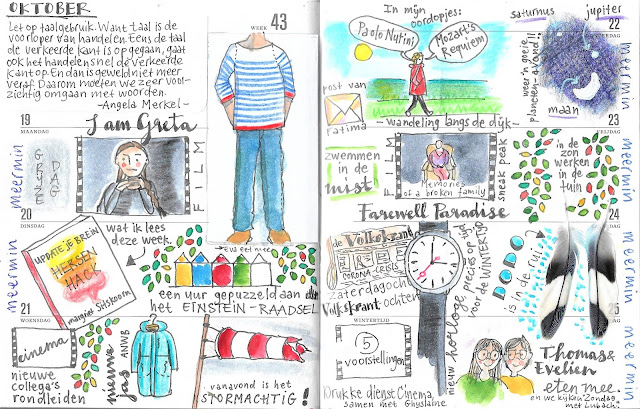 OKTOBER
Let op taalgebruik. Want taal is de
voorloper van handelen. Eens de taal
de verkeerde kant is opgegaan, gaat
ook het handelen snel de verkeerde
kant op. En dan is geweld niet meer
veraf. Daarom moeten we zeer voor-
zichtig omgaan met woorden.
-Angela Merkel-
WEEK 43
19
MAANDAG
meermin
GRIJZE
DAG
I am Greta
FILM
20
DINSDAG
meermin
UPDATE JE BREIN
HERSEN
HACK
margriet Sitskoorn
wat ik lees
deze week
Eva eet mee
een uur gepuzzeld aan
het EINSTEIN-RAADSEL
21
WOENSDAG
cinema
nieuwe
collega's
rondleiden
nieuwe
jas
ANWB
vanavond is het
STORMACHTIG!
In mijn
oordopjes:
Paolo Nutini
Mozart's
Requiem
post van
fatima
-wandeling langs de dijk-
zwemmen
in de
mist
FILM
Memories
of a broken family
sneak peak
Farewell Paradise
de Volkskrant
CORONA CRISIS
zaterdagochtend
Volkskrant-ochtend
WINTERTIJD
5
voorstellingen
Drukke dienst Cinema,
samen met Ghyslaine
nieuw horloge, precies op tijd
voor de WINTERTIJD
saturnus
jupiter
22
maan
meermin
23
VRIJDAG
in de
zon
werken
in de
tuin
meermin
DODO
is in de rui
meermin
25
Thomas &
Evelien
eten mee.
en we kijken 'Zondag
met Lubach'
meermin